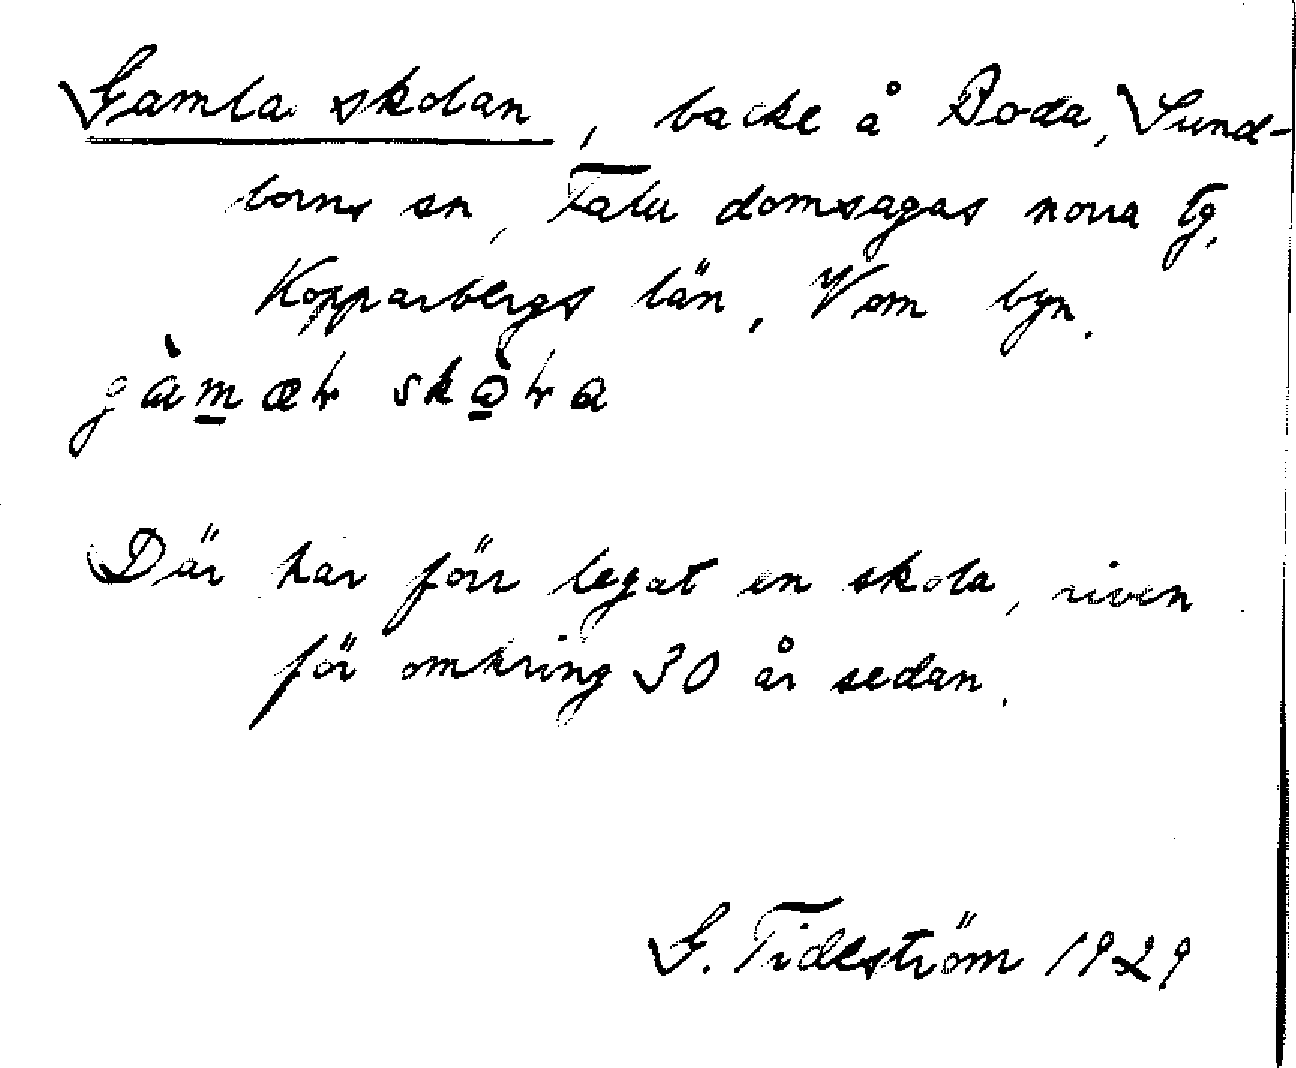 Gamla skolan, backe å Boda, Sund-
borns sn, Falu domsagas norra tg.
Kopparbergs län, V om byn.
Där har förr legat en skola, riven
för omkring 30 år sedan.
G. Tideström 1929